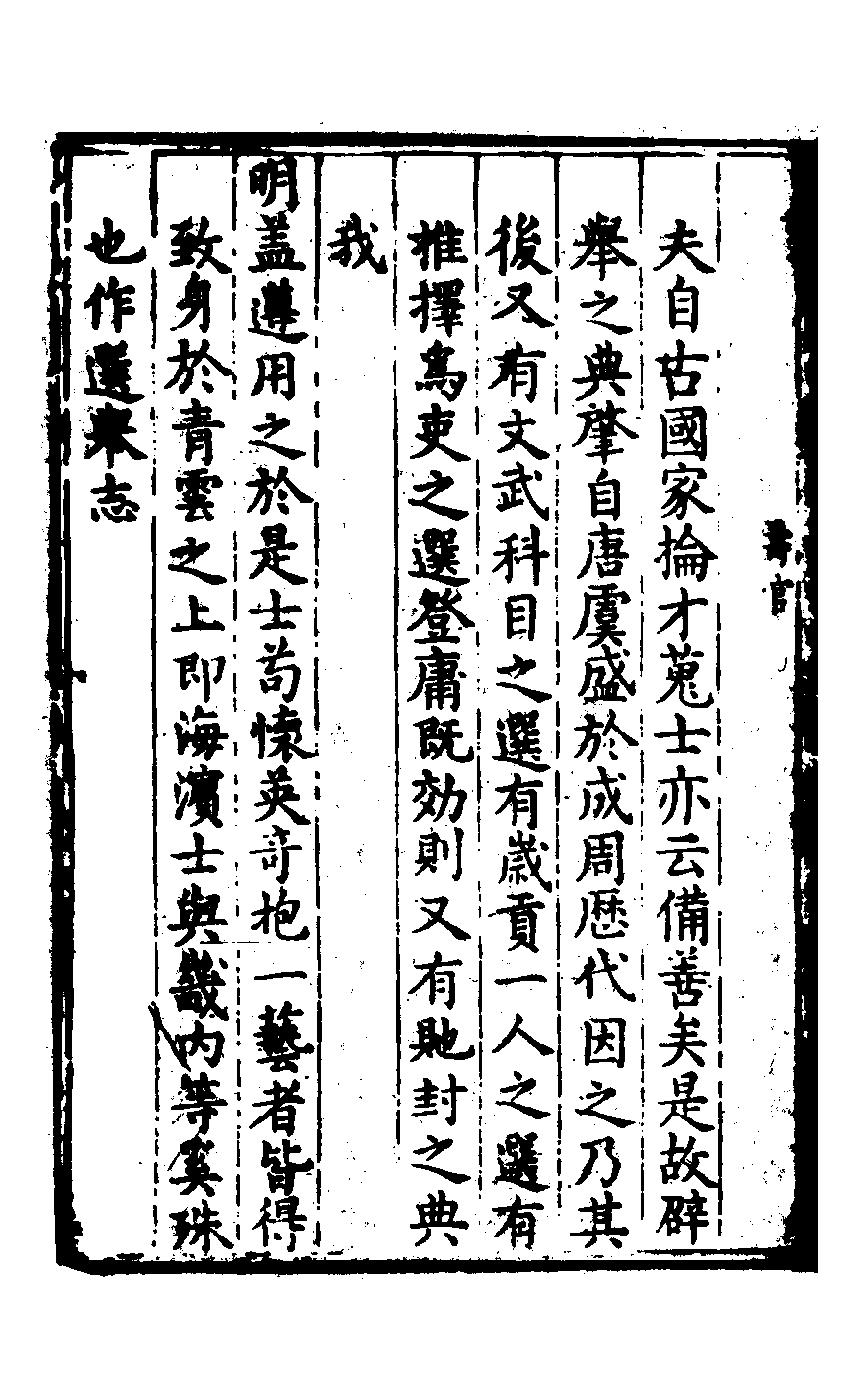 壽官
夫自古國家掄才蒐士亦云備善矣是故辟
舉之典肇自唐虞盛於成周歴代因之乃其
後又有文武科目之選有嵗貢一人之選有
推擇爲吏之選登庸既効則又有貤封之典
我
明盖遵用之於是士苟懐英竒抱一藝者皆得
致身於青雲之上即海濵士與畿内等奚殊
也作選舉志